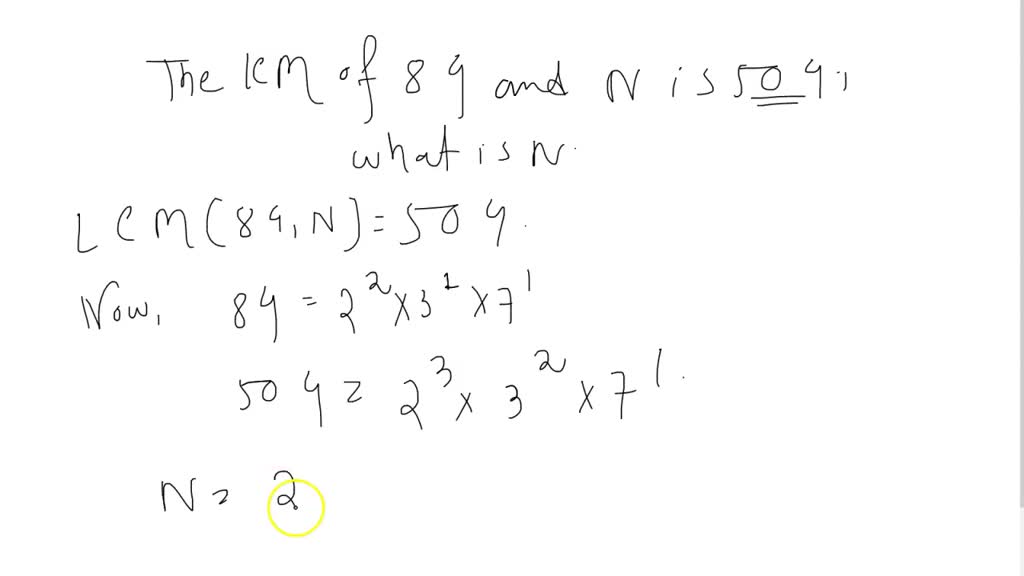 The LCM of 84 and N is 504,
what is N.
LCM(84, N) = 504.
Now, 84 = 2² × 3¹ × 7¹
504 = 2³ × 3² × 7¹.
N = 2